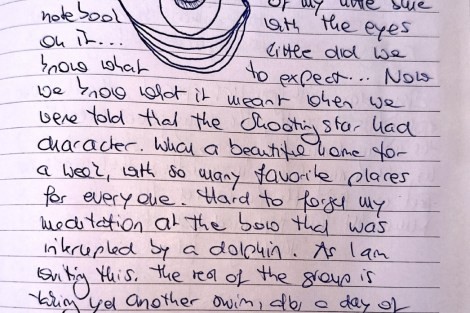 of my little blue
notebook with the eyes
on it... little did we
know what to expect... Now
we know what it meant when we
were told that the Shooting star had
character. What a beautiful home for
a week, with so many favorite places
for everyone. Hard to forget my
meditation at the bow that was
interrupted by a dolphin. As I am
writing this, the rest of the group is
taking yet another swim, a day of